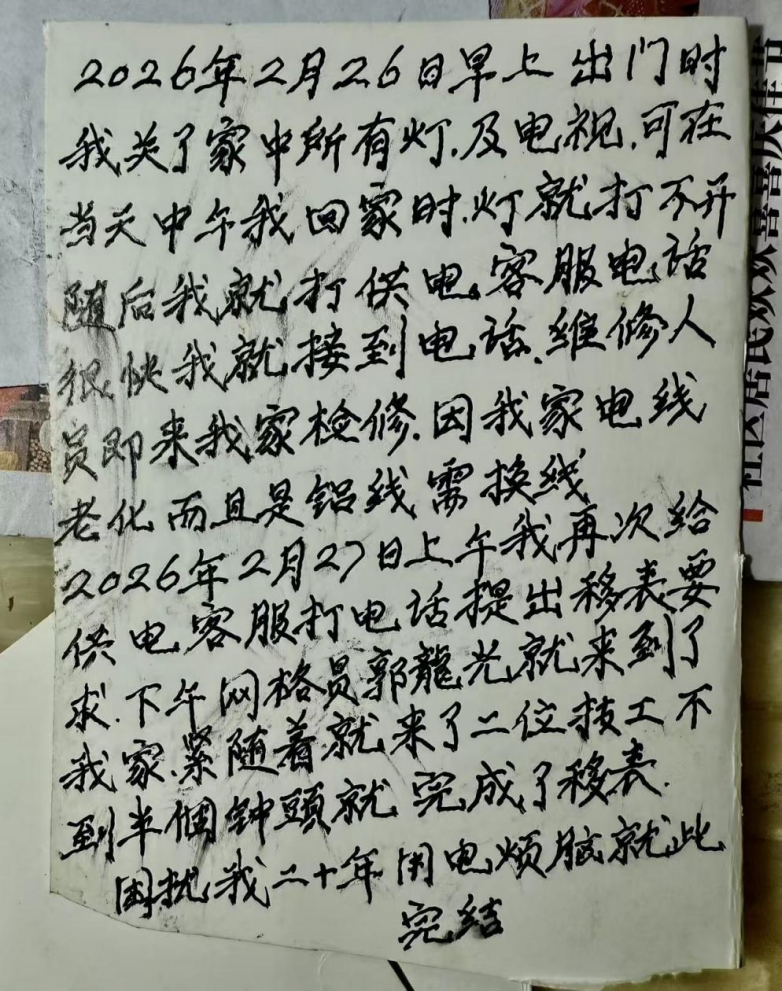 2026年2月26日早上出门时
我关了家中所有灯.及电视.可在
当天中午我回家时.灯就打不开
随后我就打供电客服电话
很快我就接到电话.维修人
员即来我家检修.因我家电线
老化而且是铝线需换线
2026年2月27日上午我再次给
供电客服打电话提出移表要
求.下午网格员郭龍光就来到了
我家.紧随着就来了二位技工不
到半個钟頭就完成了移表.
困扰我二十年用电烦脑就此
完结
社区居民欢欢喜喜庆佳节